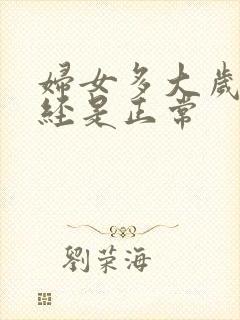 婦女多大歲
經是正常
劉荣海